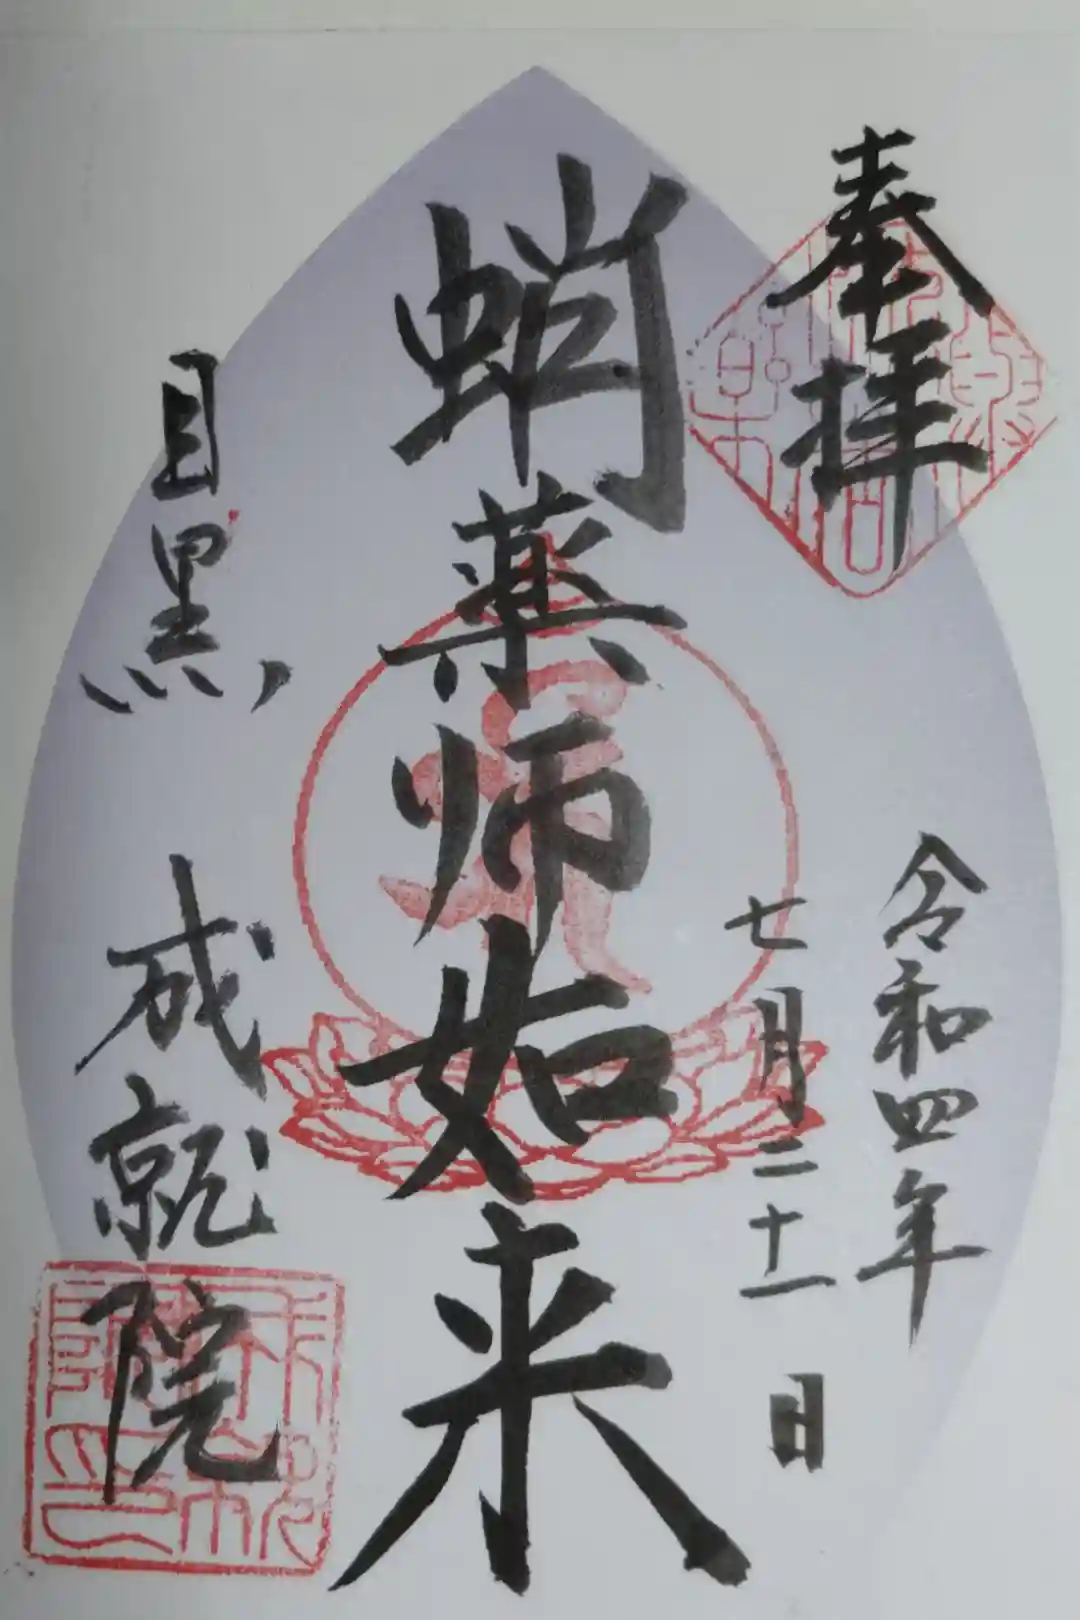 奉拝
令和四年
七月二十一日
蛸薬师如来
目黒 成就院